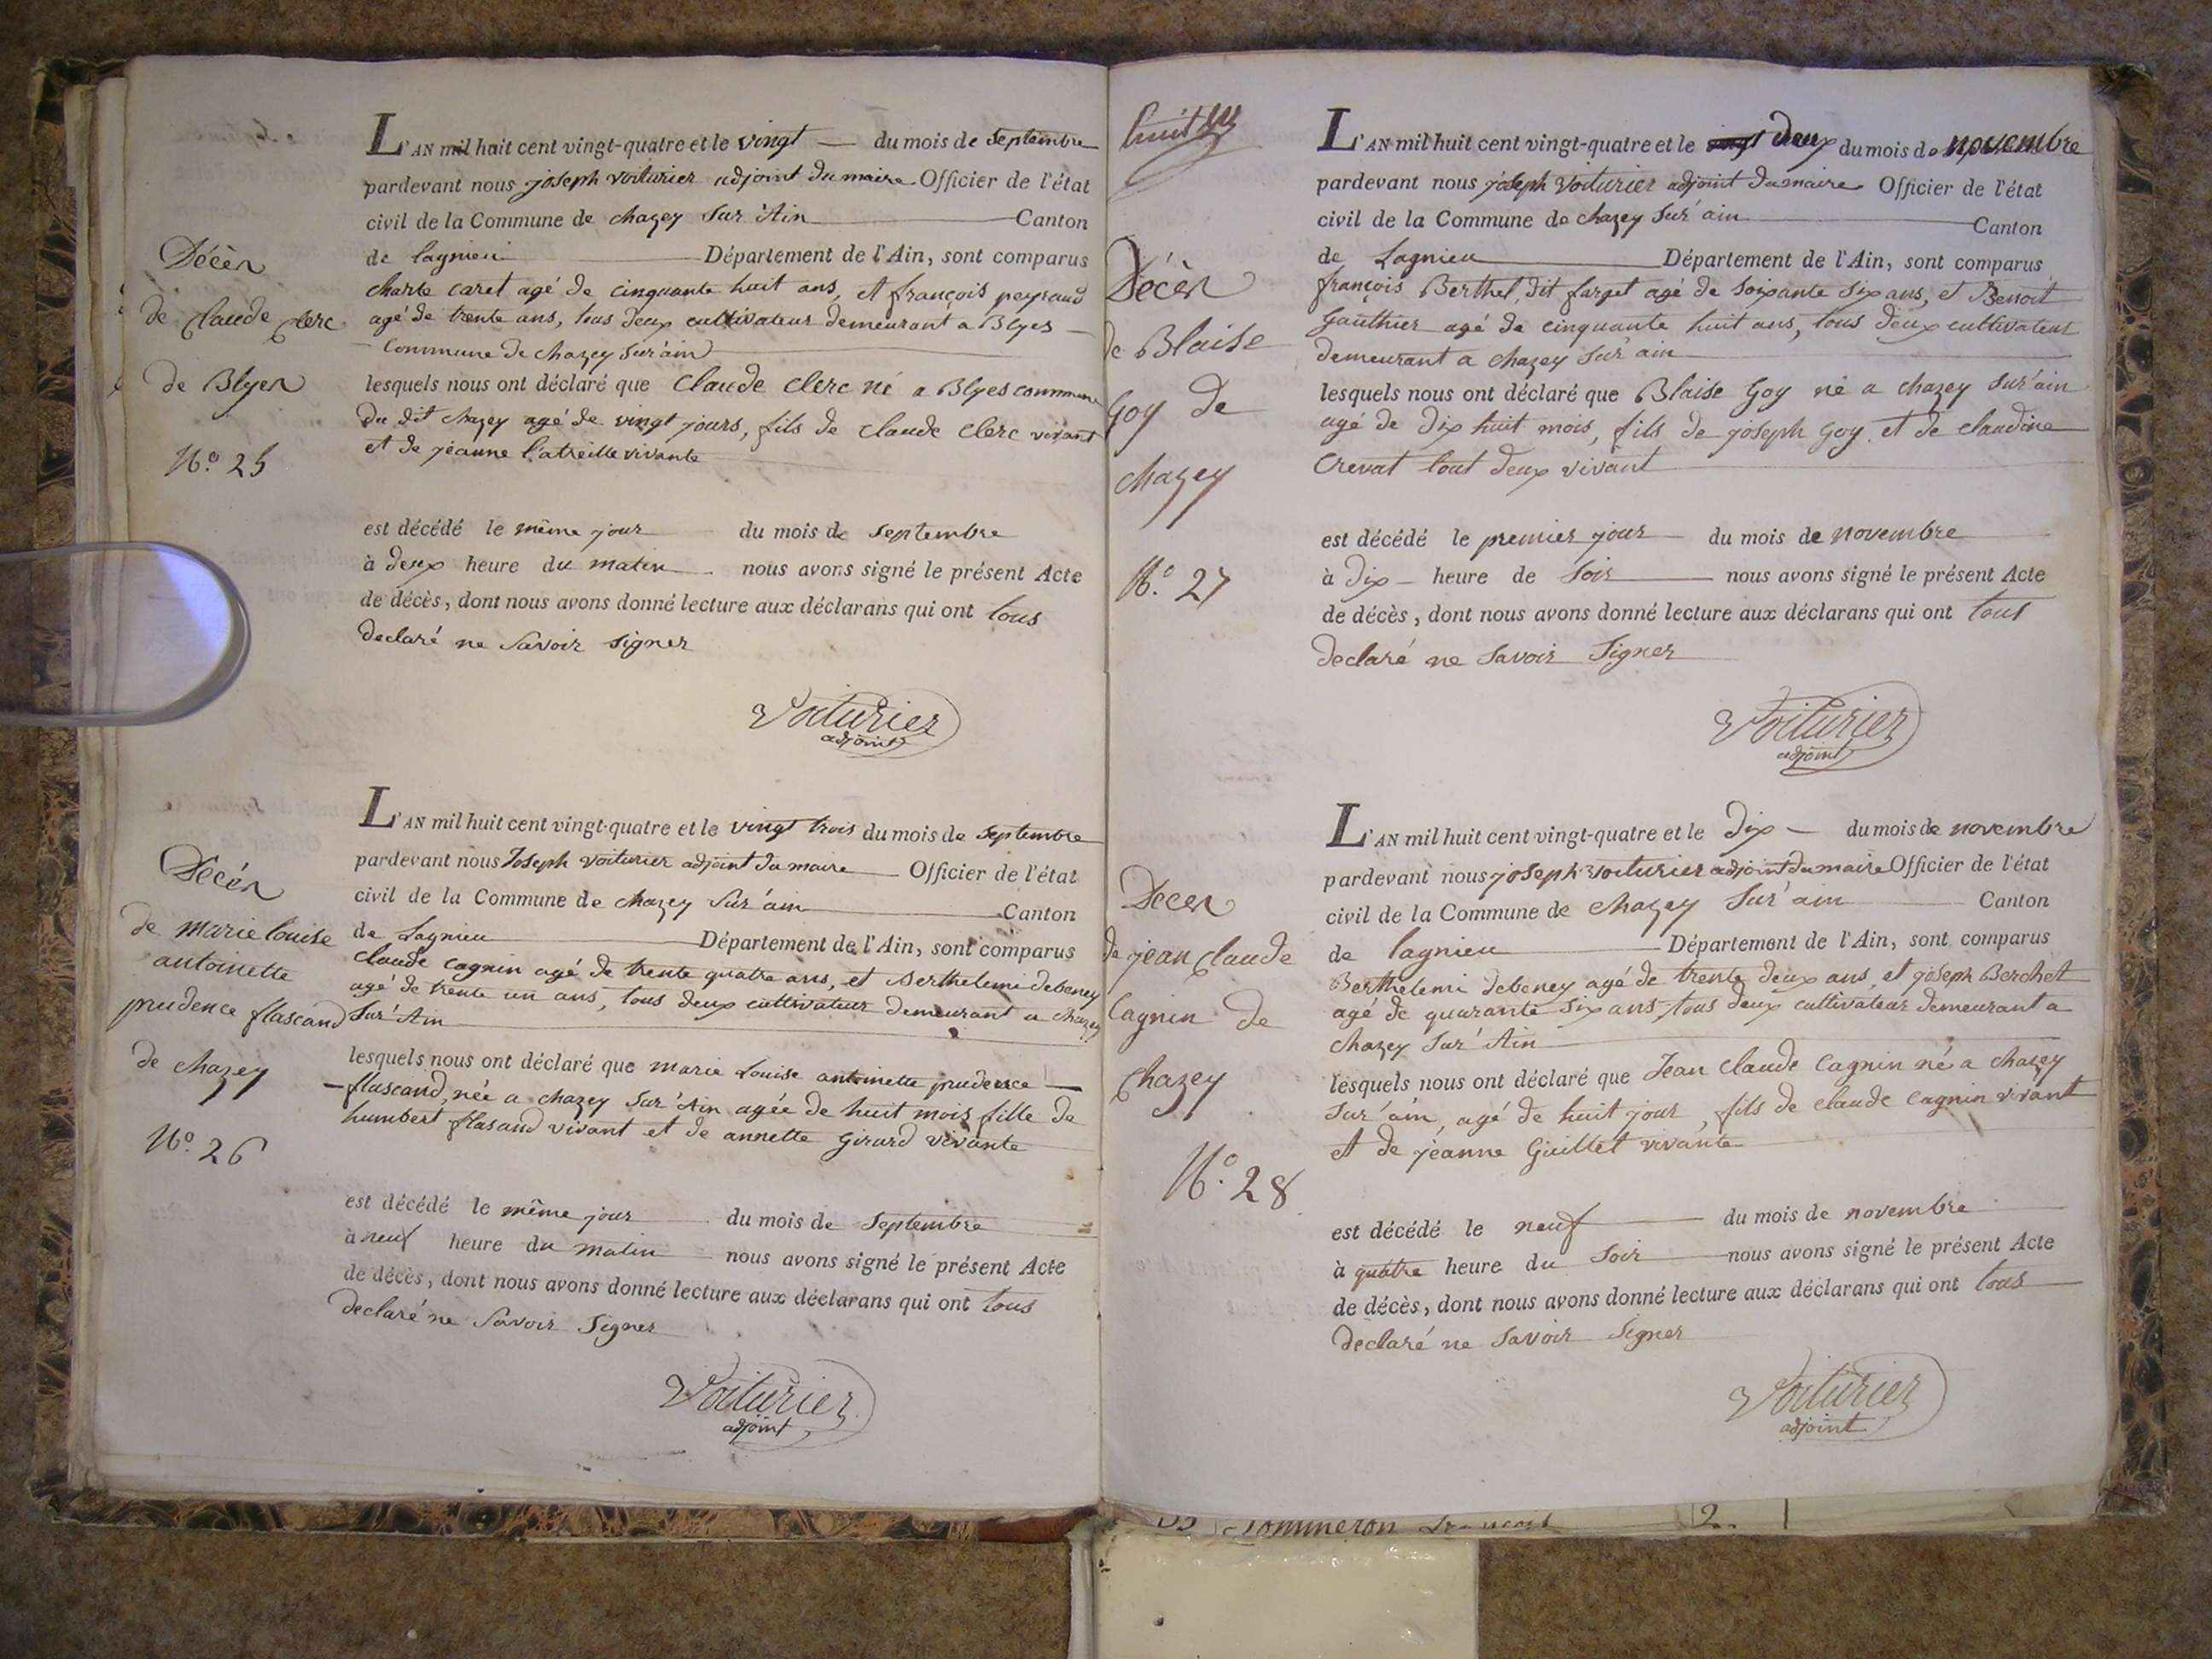 L'AN mil huit cent vingt-quatre et le vingt — du mois de septembre
pardevant nous joseph voiturier adjoint du maire Officier de l'état
civil de la Commune de chazey sur 'Ain Canton
de lagnieu Département de l'Ain, sont comparus
charle caret agé de cinquante huit ans, et françois peyraud
agé de trente ans, tous deux cultivateur demeurant a Blyes
commune de chazey sur'ain
Décès
de claude clerc
de Blyes
N.º 25
lesquels nous ont déclaré que claude clerc né a Blyes commune
du dit chazey agé de vingt jours, fils de claude clerc vivant
et de jeanne l'atreille vivante
est décédé le même jour du mois de septembre
à deux heure du matin nous avons signé le présent Acte
de décès, dont nous avons donné lecture aux déclarans qui ont tous
declaré ne savoir signer
Voiturier
adjoint
L'AN mil huit cent vingt-quatre et le vingt trois du mois de septembre
pardevant nous Joseph voiturier adjoint du maire Officier de l'état
civil de la Commune de chazey sur'ain Canton
de Lagnieu Département de l'Ain, sont comparus
claude cagnin agé de trente quatre ans, et Berthelemi debeney
agé de trente un ans, tous deux cultivateur demeurant a chazey
sur'Ain
Décès
de marie louise
antoinette
prudence flascand
de chazey
N.º 26
lesquels nous ont déclaré que marie Louise antoinette prudence —
— flascand, née a chazey sur'Ain agée de huit mois fille de
humbert flasand vivant et de annette Girard vivante
est décédé le même jour du mois de septembre
à neuf heure du matin nous avons signé le présent Acte
de décès, dont nous avons donné lecture aux déclarans qui ont tous
declaré ne savoir signer
Voiturier
adjoint
huit
L'AN mil huit cent vingt-quatre et le vingt deux du mois de novembre
pardevant nous joseph voiturier adjoint du maire Officier de l'état
civil de la Commune de chazey sur'ain Canton
de Lagnieu Département de l'Ain, sont comparus
françois Berthet, dit farget agé de soixante six ans, et Benoit
Gauthier agé de cinquante huit ans, tous deux cultivateur
demeurant a chazey sur'ain
Décès
de Blaise
Goy de
chazey
N.º 27
lesquels nous ont déclaré que Blaise Goy né a chazey sur'ain
agé de dix huit mois, fils de joseph Goy et de claudine
Crevat tout deux vivant
est décédé le premier jour du mois de novembre
à dix — heure de soir nous avons signé le présent Acte
de décès, dont nous avons donné lecture aux déclarans qui ont tous
declaré ne savoir signer
Voiturier
adjoint
L'AN mil huit cent vingt-quatre et le dix — du mois de novembre
pardevant nous joseph voiturier adjoint du maire Officier de l'état
civil de la Commune de chazey sur'ain Canton
de lagnieu Département de l'Ain, sont comparus
Berthelemi debeney agé de trente deux ans, et joseph Berchet
agé de quarante six ans, tous deux cultivateur demeurant a
chazey sur'Ain
Decès
de jean claude
Cagnin de
chazey
N.º 28
lesquels nous ont déclaré que Jean claude cagnin né a chazey
sur'ain, agé de huit jour, fils de claude cagnin vivant
et de jeanne Guillet vivante
est décédé le neuf du mois de novembre
à quatre heure du soir nous avons signé le présent Acte
de décès, dont nous avons donné lecture aux déclarans qui ont tous
declaré ne savoir signer
Voiturier
adjoint
Pommeron françois 2.